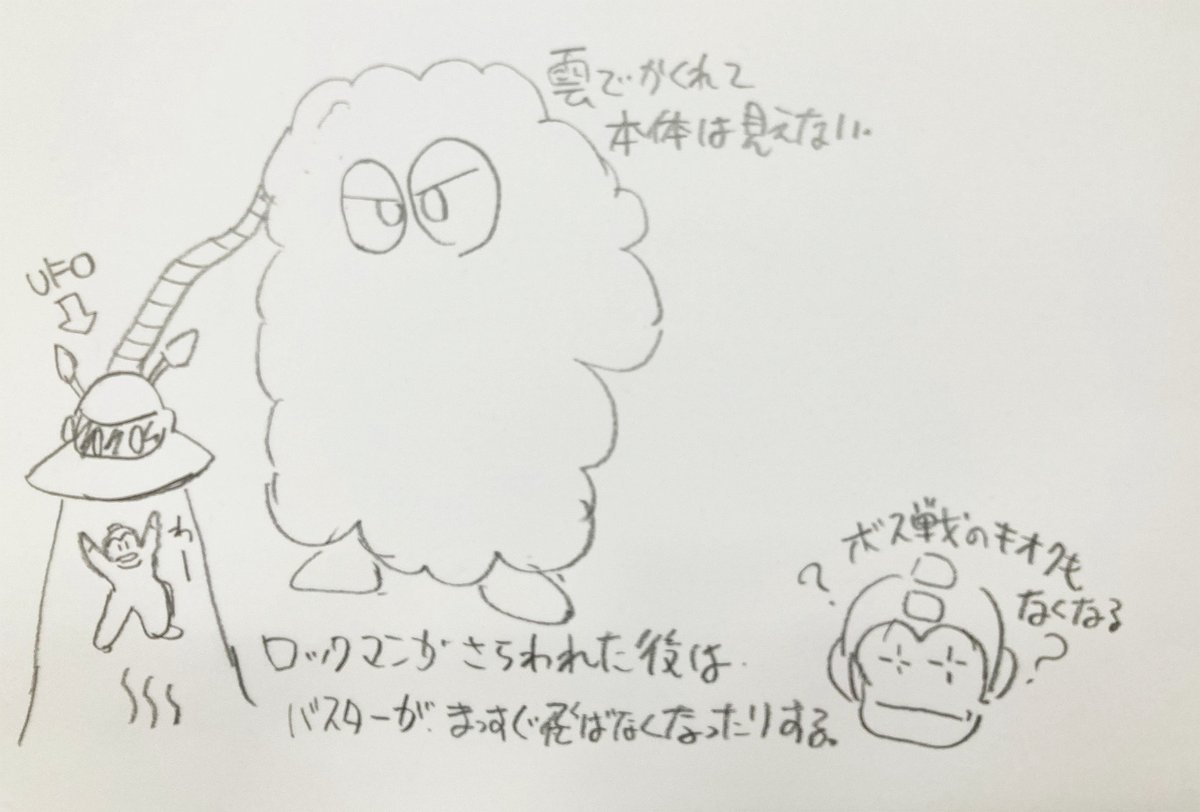 雲でかくれて
本体は見えない.
UFO
わー
ボス戦のキオクも
なくなる
?
?
ロックマンがさらわれた後は
バスターが、まっすぐ飛ばなくなったりする。